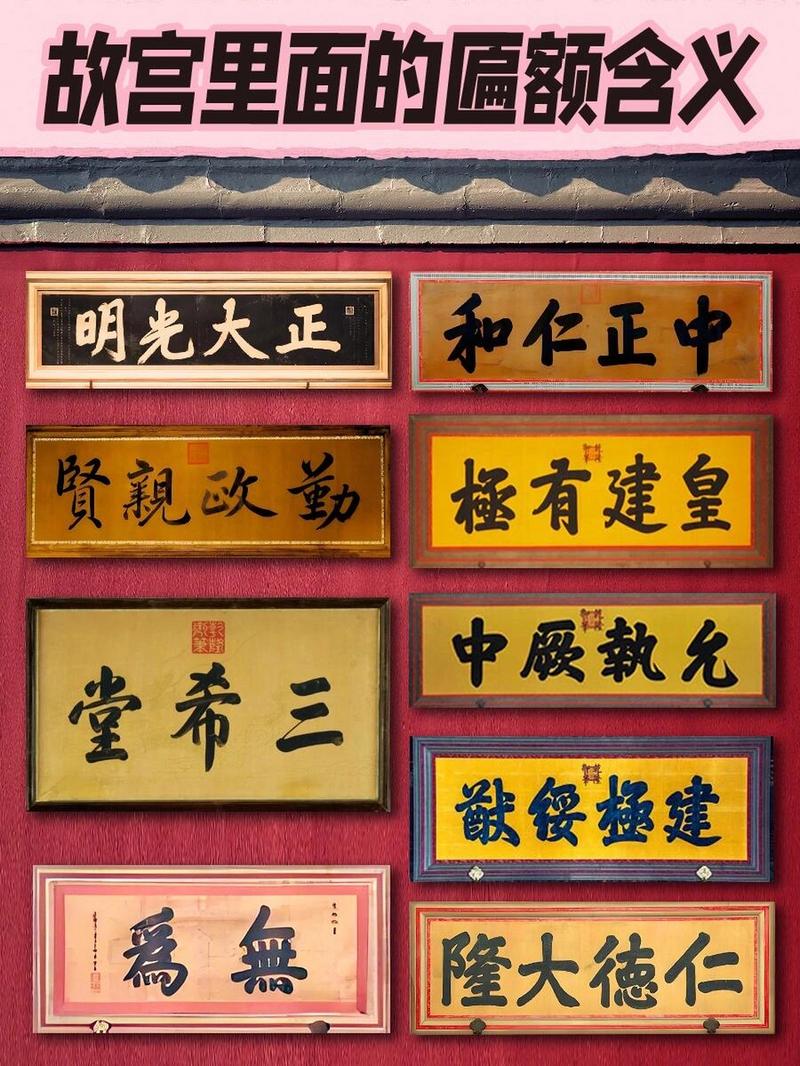 故宫里面的匾额含义
正大光明
中正仁和
勤政親賢
皇建有極
乾隆御筆
三希堂
允執厥中
建極綏猷
無爲
仁徳大隆